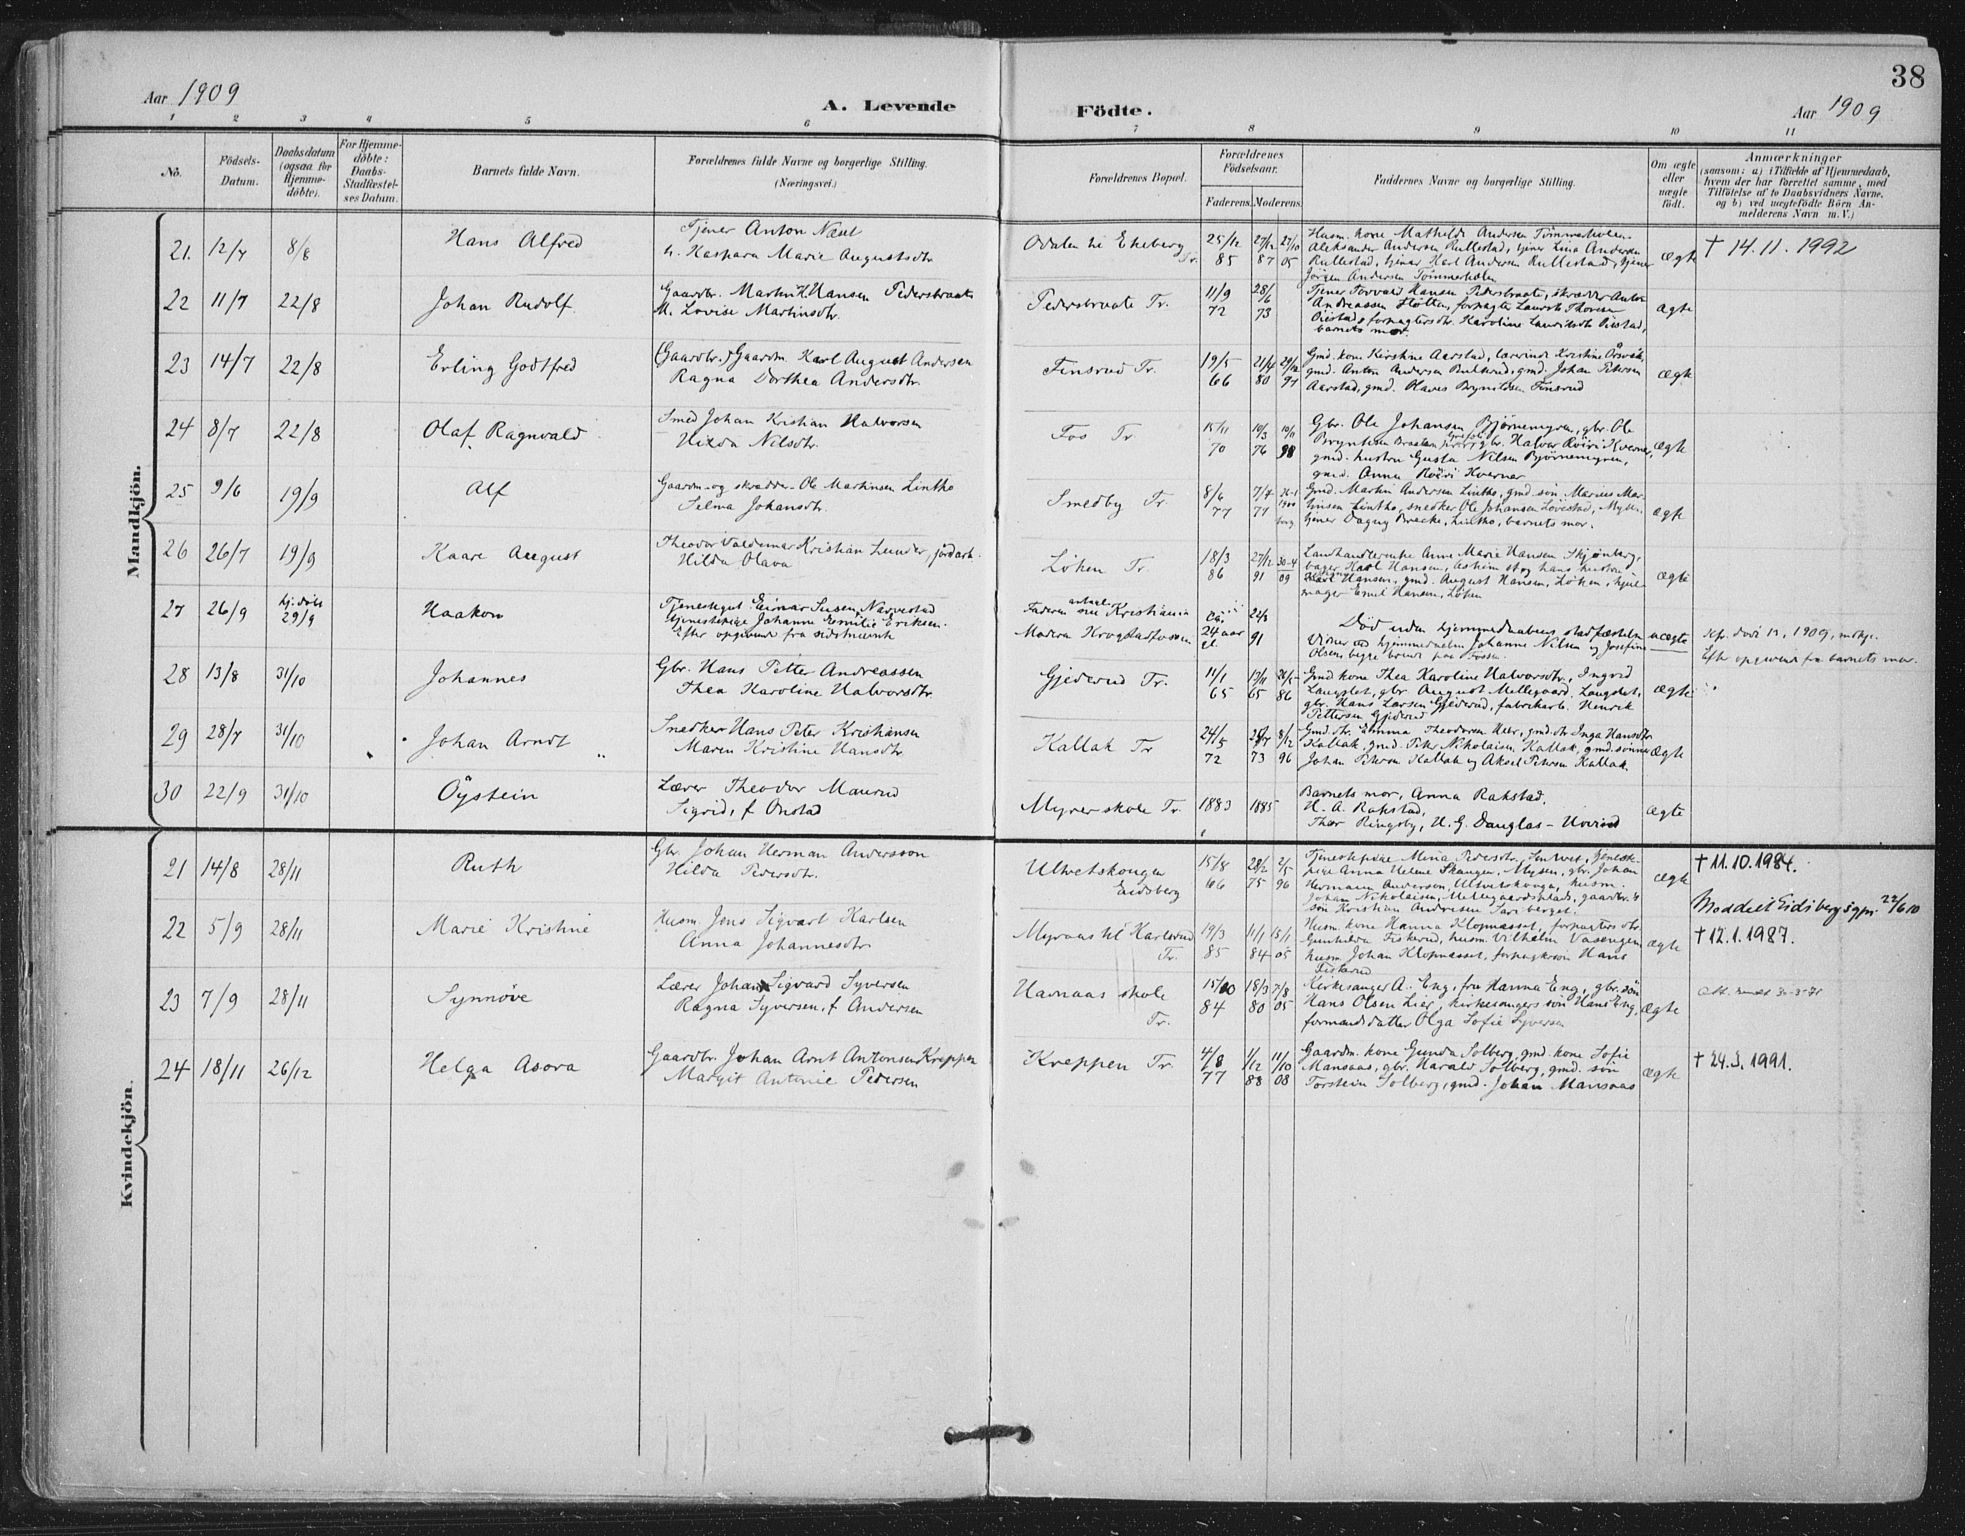 38
Aar 1909
A. Levende
Födte.
Aar 1909
1 2 3 4 5 6 7 8 9 10 11
No.
Födsels-
Datum.
Daabsdatum
(ogsaa for
Hjemme-
döbte).
For Hjemme-
döbte:
Daabs-
Stadfæstel-
ses Datum.
Barnets fulde Navn.
Forældrenes fulde Navne og borgerlige Stilling.
(Næringsvei.)
Forældrenes Bopæl.
Forældrenes
Födselsaar.
Faderens. Moderens.
Faddernes Navne og borgerlige Stilling.
Om ægte
eller
uægte
födt.
Anmærkninger
(saasom: a) i Tilfælde af Hjemmedaab,
hvem der har forrettet samme, med
Tilföielse af to Daabsvidners Navne,
og b) ved uægtefödte Börn An-
melderens Navn m. V.)
Mandkjön.
21. 12/7 8/8 Hans Alfred
Tjener Anton Næset
h. Kaspara Marie Augustsdtr
Odalen til Ekeberg
Tr.
25/12 27/12 27/10
85 87 05
Husm. kone Mathilde Andersen Tömmerholen
Aleksander Andersen Rullestad, tjener Lina Andersen
Rullestad, tjener Karl Andersen Rullestad, tjener
Jörgen Andersen Tömmerholen
ægte
† 14.11.1992
22 11/7 22/8 Johan Rudolf
Gaardbr. Martin K. Hansen Pedersbraate
M. Lovise Martinsdtr.
Pedersbraate Tr.
11/9 28/6
72 73
Tjener Torvald Hansen Pedersbraate, skrædder Anton
Andreassen Fløtten, forpagter Laurits Thoresen
Öiestad, forpagtersdtr. Karoline Lauritsdtr Öiestad,
barnets mor.
ægte
23 14/7 22/8 Erling Godtfred
(Gaardbr.) Gaardm. Karl August Andersen
Ragna Dorthea Andersdtr.
Finsrud Tr.
19/5 21/4 29/12
66 80 97
Gmd. kone Kirstine Aarstad, lærerinde Kristine Örsvik,
gmd. Anton Andersen Bulkrud, gmd. Johan Petersen
Aarstad, gmd. Olaves Brynildsen Finsrud
ægte
24 8/7 22/8 Olaf Ragnvald
Smed Johan Kristian Halvorsen
Hilda Nilsdtr.
Fos Tr.
15/11 10/3 19/11
70 76 98
Gbr. Ole Johansen Bjørnemyren, gbr. Ole
gmd. hustru Gusta Nilsen Bjørnemyren,
gmd. Anna Röiri Kverner
ægte
25 9/6 19/9 Alf
Gaardm. og skrædder Ole Martinsen Lintho
Selma Johansdtr.
Smedby Tr.
8/6 7/4 26-1
77 77 1900
borg.
Gmd. Martin Andersen Lintho, gmd søn Marius Mar-
tinsen Lintho, snedker Ole Johansen Løvestad, Mysen.
tjener Dagny Brecke, Lintho, barnets mor.
ægte
26 26/7 19/9 Kaare August
Theodor Valdemar Kristian Lunder, jordarb.
Hilda Olava
Løken Tr.
18/3 27/12 30-4
86 91 09
Landhandlerenke Anne Marie Hansen Skjønberg,
bager Karl Hansen, Askim st og hans hustru
Karl Hansen, gmd. August Hansen, Løken, hjul-
mager Emil Hansen, Løken
ægte
27 26/9 hj. døbt
29/9
Haakon
Tjenestegut Einar Susen, Narvestad
tjenestepige Johanne Emilie Eriksen.
Efter opgivende fra sidstnævnte
Faderen antagel. nu Kristiania
Moderen Krogstadfossen
ca.
24 aar
gl.
22/8
91
Död uden hjemmedaabens stadfæstelse
Vidner ved hjemmedaaben Johanne Nilsen og Josefine
Olsen begge boende paa Fossen.
uægte
Kfr. døde n. , 1909, mdkj.
Efter opgivende fra barnets mor.
28 13/8 31/10 Johannes
Gbr. Hans Petter Andreassen
Thea Karoline Halvorsdtr.
Gjederud Tr.
11/1 19/11 26/5
65 65 86
Gmd kone Thea Karoline Halvorsdtr, Ingrid
Langslet, gbr August Mellegaard, Langslet,
gbr. Hans Larsen Gjederud, fabrikarb. Henrik
Pettersen Gjederud
ægte
29 28/7 31/10 Johan Arndt
Snedker Hans Peter Kristiansen
Maren Kristine Hansdtr.
Kallak Tr
24/5 29/7 8/12
72 73 96
Gmd. dtr. Emma Theodorsen Heer, gmd. dtr Inga Hansdtr
Kallak, gmd. Petr Nikolaisen Kallak, gmd. sønner
Johan Petersen Kallak og Aksel Petersen Kallak.
ægte
30 22/9 31/10 Öystein
Lærer Theodor Maurud
Sigrid, f. Onstad
Myrer skole Tr.
1883 1885
Barnets mor, Anna Rakstad,
H. A. Rakstad,
Thor Ringsby, H. G. Douglas-
ægte
Kvindekjön.
21 14/8 28/11 Ruth
Gbr. Johan Herman Andersson
Hilda Pedersdtr.
Ultvetskougen
Eidsberg
15/8 28/2 2/5
66 75 96
Tjenestepige Mina Pedersdtr,
pige Anna Helene Skaugen, Mysen, gbr. Johan
Hermann Anderson, Ultvetskouga, husm.
Johan Nikolaisen, Mellegaardsplads, gaardbr's
søn Kristian Andresen
ægte
† 11.10.1984.
Meddelt Eidsberg sgpr. 22/6 10
22 5/9 28/11 Marie Kristine
Husm. Jens Sigvart Karlsen
Anna Johannesdtr.
Myraas til Karlsrud
Tr.
19/3 11/1 15/1
85 84 05
Husm. kone Hanna Klopnæsset, forpagters dtr.
Gunhilda Fiskerud, husm. Vilhelm Vasengen
husm. Johan Klopnæsset, forpagtersøn Hans
Fiskerud
ægte
† 12.1.1987.
23 7/9 28/11 Synnöve
Lærer Johan Sigvard Syversen
Ragna Syversen, f. Andersen
Havnaas skole
Tr.
15/10 18/3 7/8
84 80 05
Kirkesanger A. Eng, fru Hanna Eng, gbr. søn
Hans Olsen Lier, kirkesangers søn Hans Eng,
formandsdatter Olga Sofie Syversen
ægte
24 18/11 26/12 Helga Asora
Gaardbr. Johan Arnt Antonsen Kreppen
Margit Antonie Pedersen
Kreppen Tr.
4/8 1/12 11/10
77 88 08
Gaardm. kone Gunda Solberg, gmd. kone Sofie
Mansaas, gbr. Harald Solberg, gmd. søn
Torstein Solberg, gmd. Johan Mansaas
ægte
† 24.3.1991.